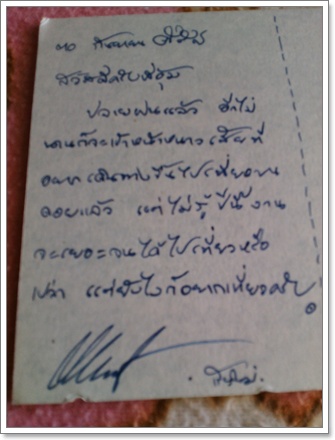 ๒๐ กันยายน
สวัสดีครับพี่อุ้ม
ปลายฝนแล้ว อีกไม่
นานก็จะเข้าหน้าหนาว
อยากเดินทางขึ้นไปเที่ยวบน
ดอยแล้ว แต่ไม่รู้ ปีนี้งาน
จะเยอะจนได้ไปเที่ยวหรือ
เปล่า แต่ยังไงก็อยากเที่ยวครับ